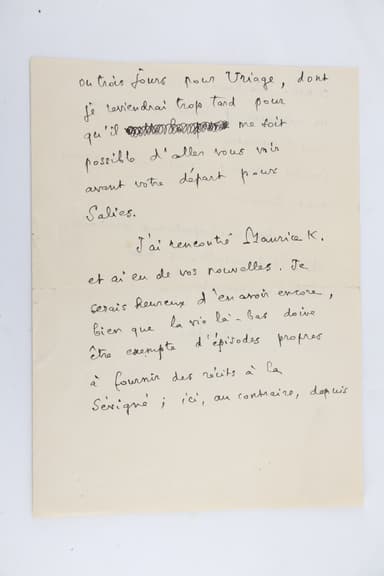 ou trois jours pour Uriage, dont
je reviendrai trop tard pour
qu'il me soit
possible d'aller vous voir
avant votre départ pour
Salies.
J'ai rencontré Maurice K.
et ai eu de vos nouvelles. Je
serais heureux d'en avoir encore,
bien que la vie là-bas doive
être exempte d'épisodes propres
à fournir des récits à la
Sévigné ; ici, au contraire, depuis